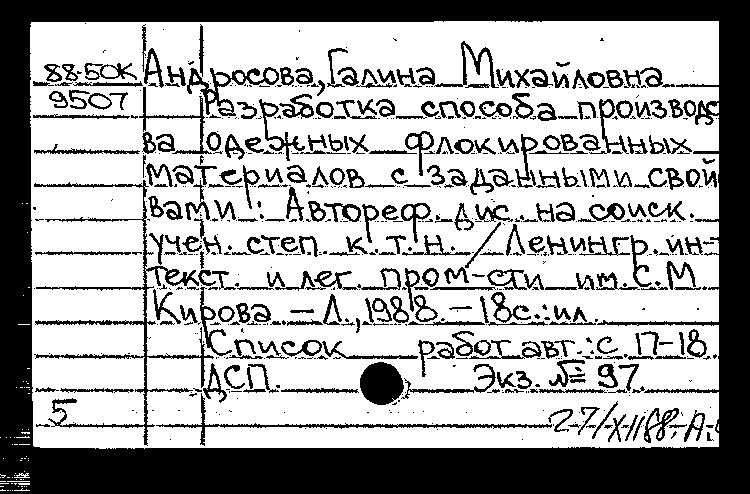 88-50К Андросова, Галина Михайловна
9507 Разработка способа производс
ва одежных флокированных
материалов с заданными свой
вами : Автореф. дис. на соиск.
учен. степ. к. т. н. / Ленингр. ин-т
текст. и лег. пром-сти им. С. М
Кирова – Л., 1988. – 18с.: ил.
Список работ авт.: с. 17-18.
ДСП. Экз. № 97
5
27/XII88